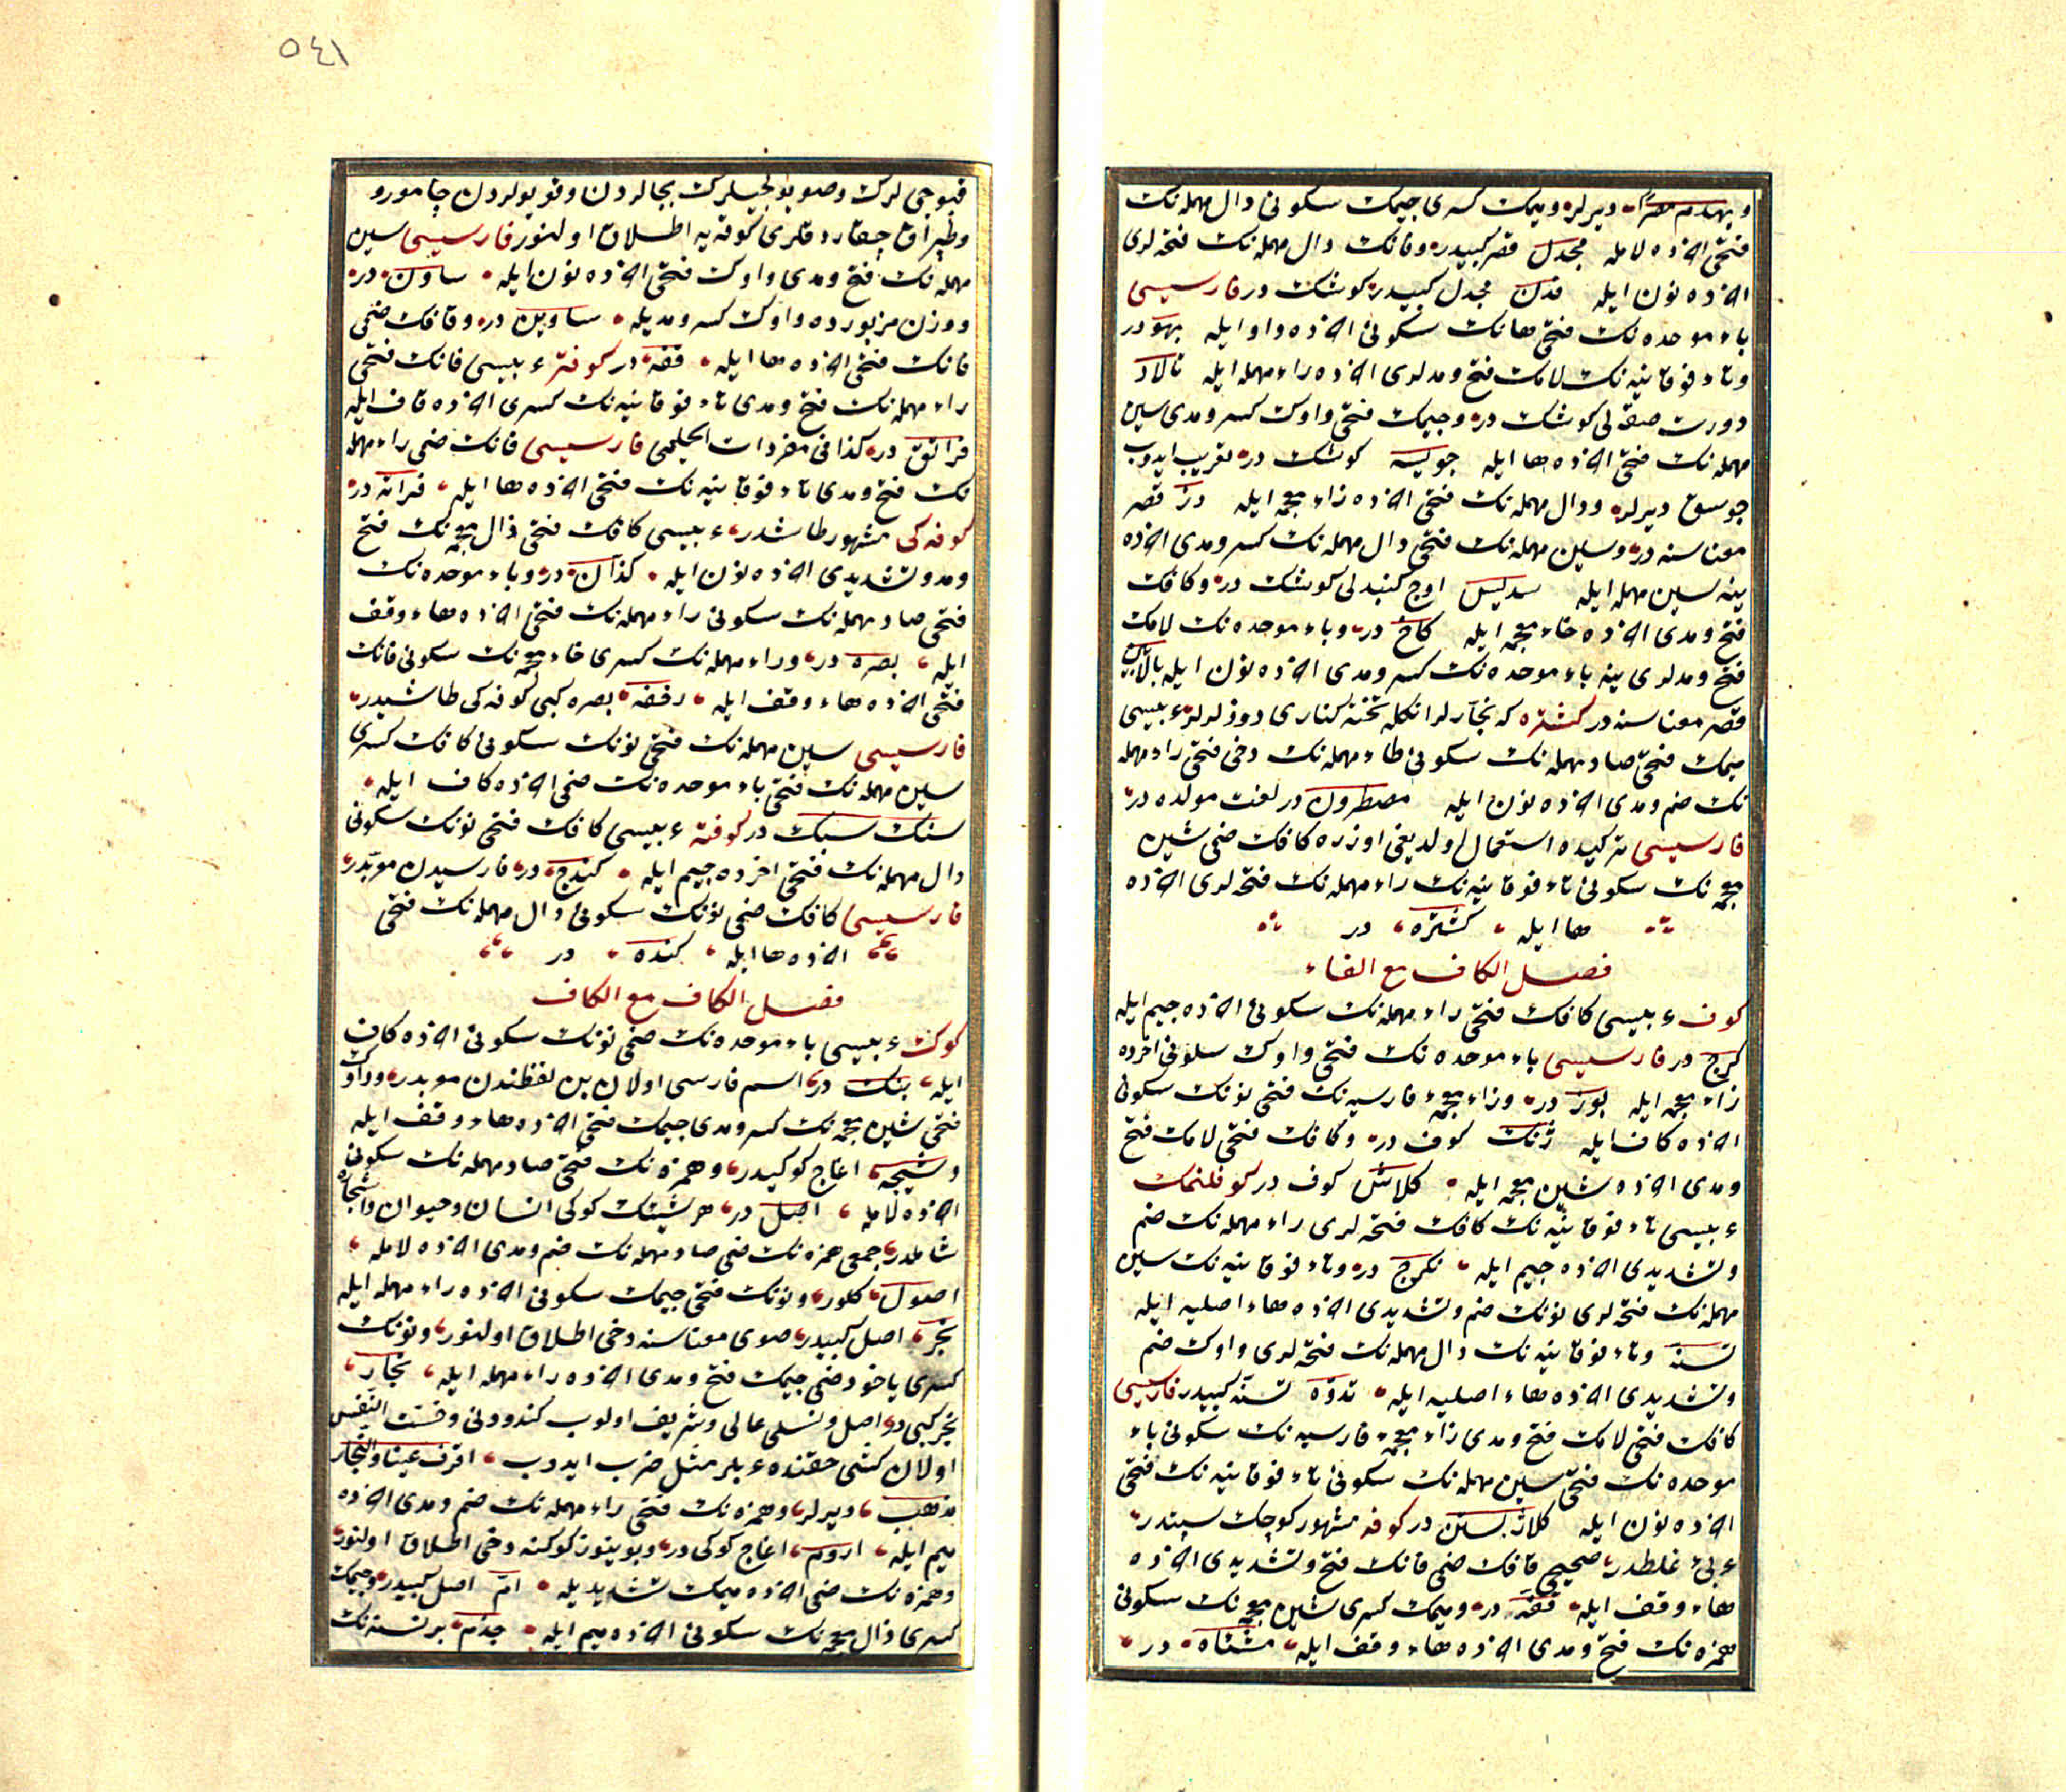 ويهدم مصرًا ديرلر وميمك كسرى جيمك سكونى دال مهمله نك
فتحى اخرده لامله مجدل قصر كبيدر وفانك دال مهمله نك فتحه لرى
اخرده نون ايله فدن مجدل كبيدر كوشك در فارسيسى
باء موحده نك فتحى هانك سكونى اخرده واو ايله بهو در
وتاء فوقانيه نك لامك فتح ومدلرى اخرده راء مهمله ايله تالار
دورت صفه لى كوشك در وجيمك فتحى واوك كسر ومدى سين
مهمله نك فتحى اخرده ها ايله جويسه كوشك در تعريب ايدوب
جوسق ديرلر ودال مهمله نك فتحى اخرده زاء معجمه ايله دز قصر
معناسنه در وسين مهمله نك فتحى دال مهمله نك كسر ومدى اخرده
ينه سين مهمله ايله سديس اوج كنبدلى كوشك در وكافك
فتح ومدى اخرده خاء معجمه ايله كاخ در وباء موحده نك لامك
فتح ومدلرى ينه باء موحده نك كسر ومدى اخرده نون ايله بالابين
قصر معناسنه در كشتره كه نجارلر انكله تخته كنارى دوزلرلر عربيسى
ميمك فتحى صاد مهمله نك سكونى طاء مهمله نك دخى فتحى راء مهمله
نك ضم ومدى اخرده نون ايله مصطرون در لغت مولده در
فارسيسى تركيده استعمال اولديغى اوزره كافك ضمى شين
معجمه نك سكونى تاء فوقانيه نك راء مهمله نك فتحه لرى اخرده
ها ايله كشتره در
فصل الكاف مع الفاء
كوف عربيسى كافك فتحى راء مهمله نك سكونى اخرده جيم ايله
كرج در فارسيسى باء موحده نك فتحى واوك سكونى اخرده
زاء معجمه ايله بوز در وزاء معجمهء فارسيه نك فتحى نونك سكونى
اخرده كاف ايله ژنك كوف در وكافك فتحى لامك فتح
ومدى اخرده شين معجمه ايله كلاش كوف در كوفلنمك
عربيسى تاء فوقانيه نك كافك فتحه لرى راء مهمله نك ضم
وتشديدى اخرده جيم ايله تكرج در وتاء فوقانيه نك سين
مهمله نك فتحه لرى نونك ضم وتشديدى اخرده هاء اصليه ايله
تسنه وتاء فوقانيه نك دال مهمله نك فتحه لرى واوك ضم
وتشديدى اخرده هاء اصليه ايله تدوه تسنه كبيدر فارسيسى
كافك فتحى لامك فتح ومدى زاء معجمهء فارسيه نك سكونى باء
موحده نك فتحى سين مهمله نك سكونى تاء فوقانيه نك فتحى
اخرده نون ايله كلاژ بستن در كوفه مشهور كوچك سپتدر
عربى غلطدر صحيحى قافك ضمى فانك فتح وتشديدى اخرده
هاء وقف ايله قفه در وميمك كسرى شين معجمه نك سكونى
همزه نك فتح ومدى اخرده هاء وقف ايله مشئاه در
٥٤١
قيوجى لرك وصو يولجيلرك بجالردن وقويولردن چامورو
وطپراق چقاردقلرى كوفه يه اطلاق اولنور فارسيسى سين
مهمله نك فتح ومدى واوك فتحى اخرده نون ايله ساون در
ووزن مزبورده واوك كسر ومديله ساوين در وقافك ضمى
فانك فتحى اخرده ها ايله قفه در كوفتر عربيسى فانك فتحى
راء مهمله نك فتح ومدى تاء فوقانيه نك كسرى اخرده قاف ايله
فراتق در كذا فى مفردات الحليمى فارسيسى فانك ضمى راء مهمله
نك فتح ومدى تاء فوقانيه نك فتحى اخرده ها ايله فراته در
كوفه كى مشهور طاشدر عربيسى كافك فتحى ذال معجمه نك فتح
ومد وتشديدى اخرده نون ايله كذان در وباء موحده نك
فتحى صاد مهمله نك سكونى راء مهمله نك فتحى اخرده هاء وقف
ايله بصره در وراء مهمله نك كسرى خاء معجمه نك سكونى فانك
فتحى اخرده هاء وقف ايله رخفه بصره كبى كوفه كى طاشيدر
فارسيسى سين مهمله نك فتحى نونك سكونى كافك كسرى
سين مهمله نك فتحى باء موحده نك ضمى اخرده كاف ايله
سنك سبك در كوفته عربيسى كافك فتحى نونك سكونى
دال مهمله نك فتحى اخرده جيم ايله كندج در فارسيدن معربدر
فارسيسى كافك ضمى نونك سكونى دال مهمله نك فتحى
اخرده ها ايله كنده در
فصل الكاف مع الكاف
كوك عربيسى باء موحده نك ضمى نونك سكونى اخرده كاف
ايله بنك در اسم فارسى اولان بن لفظندن معربدر وواوك
فتحى شين معجمه نك كسر ومدى جيمك فتحى اخرده هاء وقف ايله
وشيجه اغاج كوكيدر وهمزه نك فتحى صاد مهمله نك سكونى
اخرده لامله اصل در هر شيئك كوكى انسان وحيوان واشجاره
شاملدر جمعى همزه نك ضمى صاد مهمله نك ضم ومدى اخرده لامله
اصول كلور ونونك فتحى جيمك سكونى اخرده راء مهمله ايله
نجر اصل كبيدر صوى معناسنه دخى اطلاق اولنور ونونك
كسرى ياخود ضمى جيمك فتح ومدى اخرده راء مهمله ايله نجار
نجر كبى در اصل ونسلى عالى وشريف اولوب كندو دنى وخسّت النفس
اولان كشى حقنده عربلر مثل ضرب ايدوب اقرف عينا والنجار
مذهب ديرلر وهمزه نك فتحى راء مهمله نك ضم ومدى اخرده
ميم ايله اروم اغاج كوكى در وبوينوز كوكنه دخى اطلاق اولنور
وهمزه نك ضمى اخرده ميمك تشديديله ام اصل كبيدر وجيمك
كسرى ذال معجمه نك سكونى اخرده ميم ايله جذم بر نسنه نك